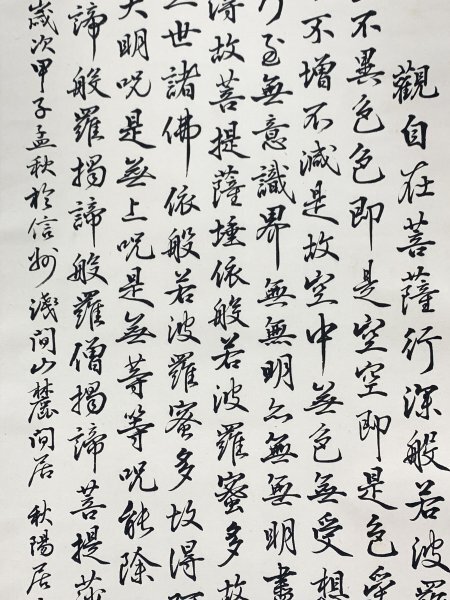 觀自在菩薩行深般若波羅
不異色色即是空空即是色受
不增不減是故空中無色無受想
乃至無意識界無無明亦無無明盡
得故菩提薩埵依般若波羅蜜多故
三世諸佛依般若波羅蜜多故得阿
大明呪是無上呪是無等等呪能除
諦般羅揭諦般羅僧揭諦菩提薩
歲次甲子孟秋於信州淺間山麓間居 秋陽居